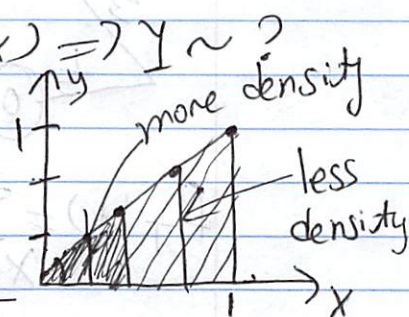 ) => Y ~ ?
y
more density
1
less
density
1
x